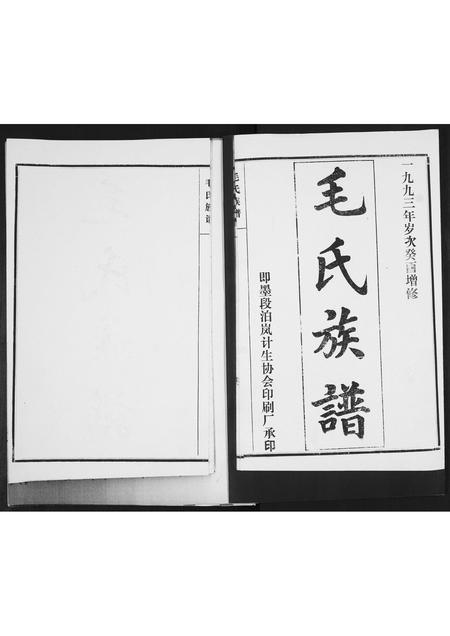 一九九三年岁次癸酉增修
毛氏族譜
即墨段泊岚计生协会印刷厂承印
毛氏族譜
毛氏族譜